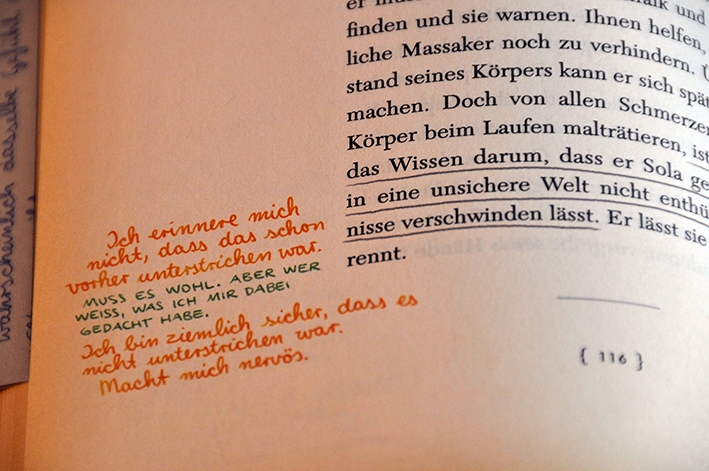 finden und sie warnen. Ihnen helfen,
liche Massaker noch zu verhindern.
stand seines Körpers kann er sich
machen. Doch von allen
Körper beim Laufen malträtieren, ist
das Wissen darum, dass er Sola
in eine unsichere Welt nicht
nisse verschwinden lässt. Er lässt sie
rennt.
Ich erinnere mich
nicht, dass das schon
vorher unterstrichen war.
MUSS ES WOHL. ABER WER
WEISS, WAS ICH MIR DABEI
GEDACHT HABE.
Ich bin ziemlich sicher, dass es
nicht unterstrichen war.
Macht mich nervös.
{ 116 }
wahrscheinlich dasselbe Gefühl